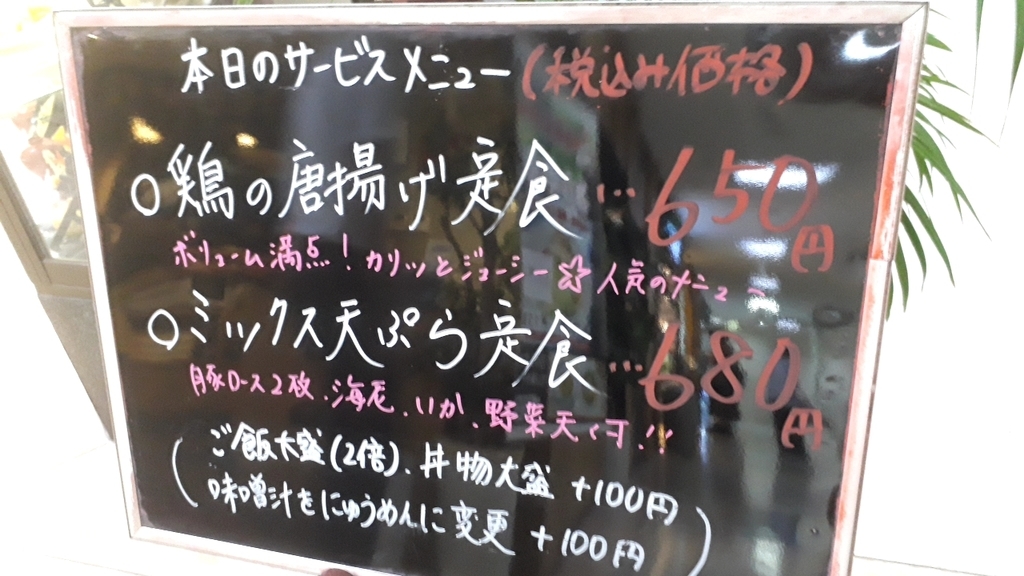 本日のサービスメニュー(税込み価格)
○鶏の唐揚げ定食…650円
ボリューム満点!カリッとジューシー☆人気のメニュー
○ミックス天ぷら定食…680円
豚ロース2枚、海老、いか、野菜天
(ご飯大盛(2倍)、丼物大盛 +100円
味噌汁をにゅうめんに変更 +100円)